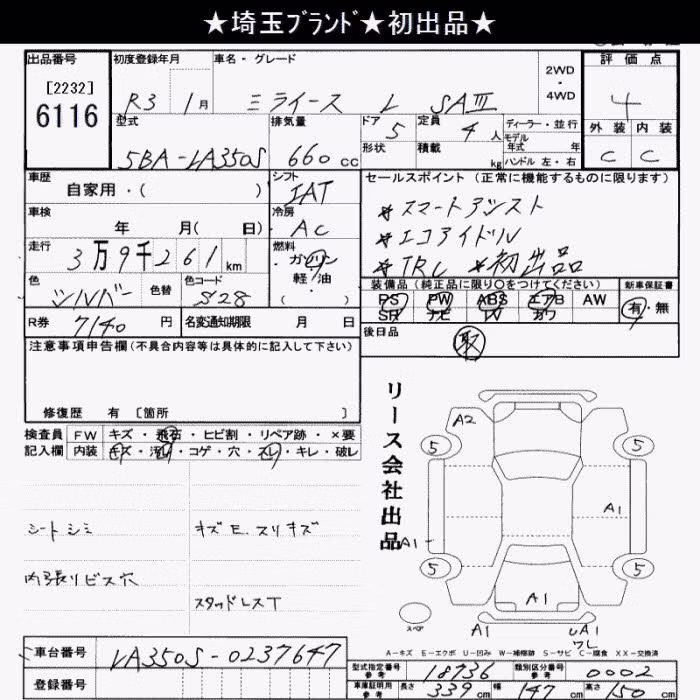 ★埼玉ﾌﾞﾗﾝﾄﾞ★初出品★
出品番号 初度登録年月 車名・グレード 2WD・4WD 評価点
[2232]
6116
R3 1月 ミライース L SAⅢ 4
型式 排気量 ドア 5 定員 4人 ディーラー・並行 外装 内装
モデル年式 年
5BA-LA350S 660cc 形状 積載 kg ハンドル 左・右 C C
車歴 シフト セールスポイント (正常に機能するものに限ります)
自家用・( ) IAT
車検 冷房 *スマートアシスト
年 月(日) AC *エコアイドル
走行 燃料
3万9千261km ガソリン *TRC *初出品
色 色替 色コード 軽・油 装備品 (純正品に限り○をつけてください) 新車保証書
シルバー S28 ( ) PS PW ABS エアB AW 有・無
SR ナビ TV カワ
R券 7140円 名変通知期限 月 日 後日品
取
注意事項申告欄(不具合内容等は具体的に記入して下さい)
修復歴 有 [箇所 ]
リース会社出品
検査員 FW キズ・飛石・ヒビ割・リペア跡・×要
記入欄 内装 キズ・汚れ・コゲ・穴・スレ・キレ・破レ
シートシミ キズE.スリキズ
内張りビス穴
スタッドレスT
A2
5 5
A1
A1
5 5
A1
スペア A1 UA1
ワレ
A-キズ E-エクボ U-凹み W-補修跡 S-サビ C-腐食 XX-交換済
車台番号 LA350S-0237647
登録番号
型式指定番号 参考 18736 類別区分番号 参考 0002
車庫証明用 参考 長さ 339cm 幅 147cm 高さ 150cm